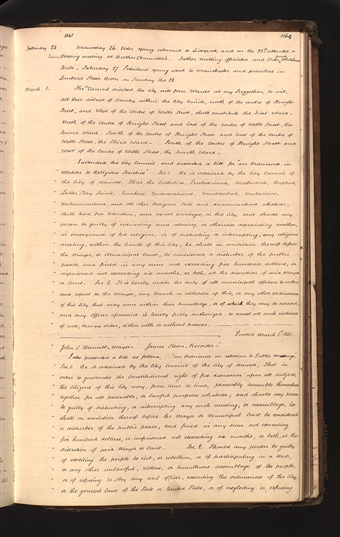 1841 1169
February 26 Wednesday 26. Elder Young returned to Liverpool, and on the 28th attended a
meeting at Brother Chamber's. Father
Saturday 27 President Young went to Manchester and preached in
Lombard Street Room on Sunday the 28.
March 1. The Council divided the city into four Wards at my suggestion, to wit,
all that district of Country within the City limits, north of the centre of Knight
Street, and West of the centre of Wells Street, shall constitute the First Ward.
North of the Centre of Knight Street and East of the centre of Wells Street, the
Second Ward. South of the Centre of Knight Street and East of the centre of
Wells Street, the Third Ward. South of the Centre of Knight Street and
West of the Centre of Wells Street, the Fourth Ward.
I attended the City Council and presented a bill for "an Ordinance in
relation to Religious Societies" Sec 1. Be it ordained by the City Council of
the City of Nauvoo, That the Catholics, Presbyterians, Methodists, Baptists,
Latter Day Saints, Quakers, Episcopalians, Universalists, Unitarians,
Mohammedans, and all other Religious Sects and denominations whatever,
shall have free toleration, and equal privileges, in this City, and should any
person be guilty of ridiculing and abusing, or otherwise depreciating another,
in consequence of his religion, or of disturbing or interrupting, any religious
meeting, within the limits of this City, he shall on conviction thereof before
the Mayor, or Municipal Court, be considered a disturber of the public
peace, and fined in any sum not exceeding five hundred dollars, or
imprisoned not exceeding six months, or both, at the discretion of said Mayor
or Court. Sec 2. It is hereby made the duty of all municipal officers to notice
and report to the Mayor, any breach or violation of this, or any other ordinance
of this City that may come within their knowledge, or of which they may be advised,
and any officer aforesaid is hereby fully authorized to arrest all such violators
of rule, law, or order, either with or without process.
Passed March 1st 1841.
John C. Bennett, Mayor. James Sloan, Recorder."
I also presented a bill as follows, "an Ordinance in relation to Public Meetings.
Sec 1. Be it ordained by the City Council of the City of Nauvoo, That in
order to guarantee the constitutional right of free discussion upon all subjects,
the citizens of this City may, from time to time, peaceably assemble themselves
together for all peaceable, or lawful purposes whatever; and should any person
be guilty of disturbing, or interrupting any such meeting, or assemblage, he
shall on conviction thereof before the Mayor or Municipal Court be considered
a disturber of the public peace, and fined in any sum not exceeding
five hundred dollars, or imprisoned not exceeding six months, or both, at the
discretion of said Mayor or Court. Sec 2. Should any person be guilty
of exciting the people to riot, or rebellion, or of participating in a mob,
or any other unlawful, riotous, or tumultuous assemblage of the people,
or of refusing to obey any civil officer, executing the ordinances of the City
or the general laws of the State or United States, or of neglecting or refusing